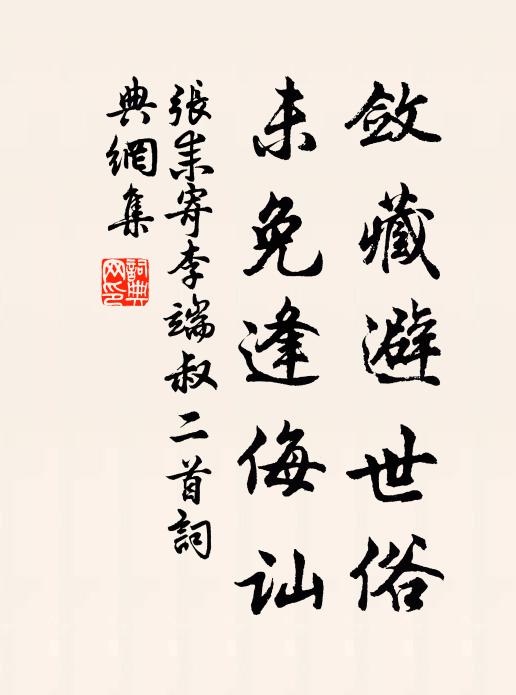 斂藏避世俗
未免逢侮訕
張耒寄李端叔二首詞
典網集
詞典网印